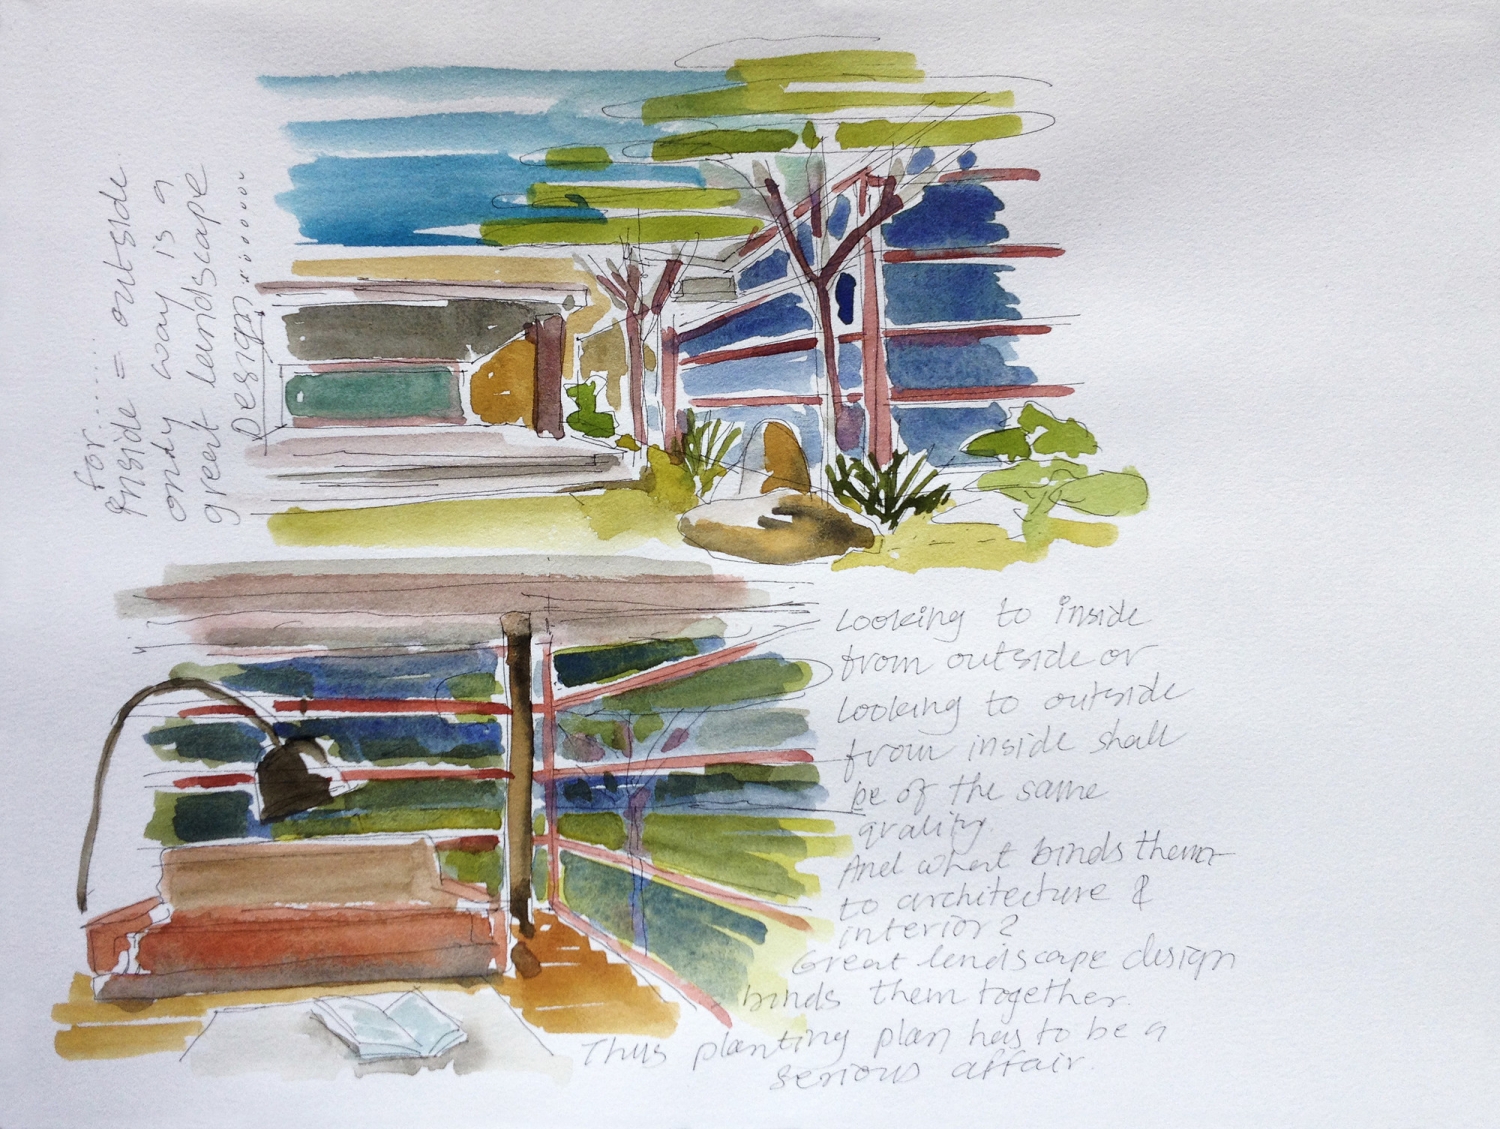 for.......
inside = outside
only way is a
great landscape
Design..........
Looking to inside
from outside or
Looking to outside
from inside shall
be of the same
quality.
And what binds them
to architecture &
interior?
Great landscape design
binds them together.
Thus planting plan has to be a
serious affair.